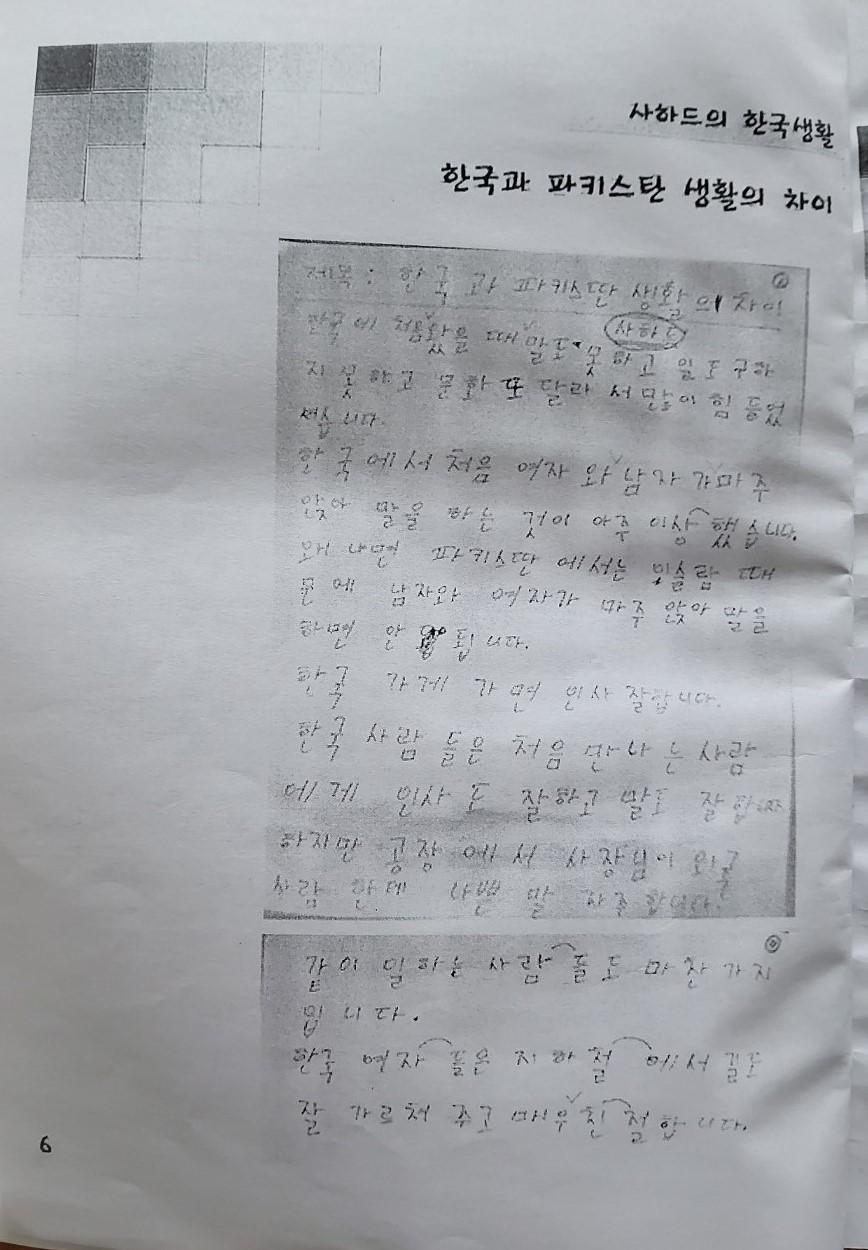 사하드의 한국생활
한국과 파키스탄 생활의 차이
제목 : 한국과 파키스탄 생활의 차이
사하드
한국에 처음왔을 때 말도 못하고 일도 구하
지 못하고 문화 또 달라 서 많이 힘 들었
습니다.
한국에서 처음 여자 와 남자 가마주
앉아 말을 하는 것이 아주 이상 했습니다.
왜 나면 파키스탄 에서는 이슬람 때
문에 남자와 여자가 마주 앉아 말을
하면 안 됩니다.
한국 가게 가면 인사 잘합니다.
한국 사람 들은 처음 만나 는 사람
에게 인사 도 잘하고 말도 잘
하지만 공장 에서 사장님이 외국
사람 한테 나쁜 말 자주 합니다.
같이 일하는 사람 들도 마찬가지
입니다.
한국 여자 들은 지하철 에서 길도
잘 가르처 주고 매우친 절합니다.
6